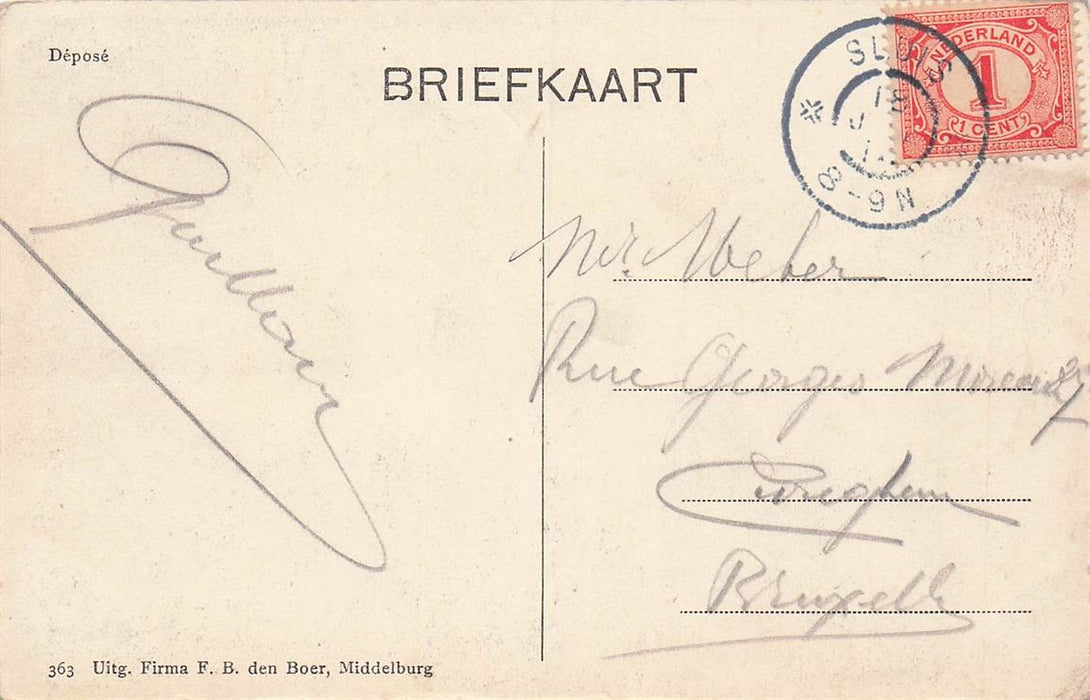 Déposé
BRIEFKAART
NEDERLAND
1
1 CENT
SLUIS
18
8-9N
Guillaume
Mr. Weber
Rue Georges Moreau
Cureghem
Bruxelles
363 Uitg. Firma F. B. den Boer, Middelburg